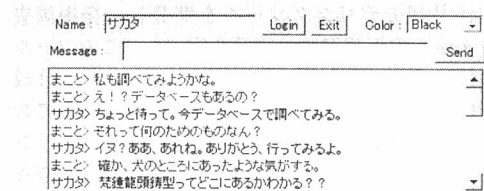 Name : サカタ Login Exit Color : Black
Message : Send
まこと> 私も調べてみようかな。
まこと> え！？データベースもあるの？
サカタ> ちょっと待って。今データベースで調べてみる。
まこと> それって何のためのものなん？
サカタ> イヌ？ああ、あれね。ありがとう、行ってみるよ。
まこと> 確か、犬のところにあったような気がする。
サカタ> 梵鐘龍頭鋳型ってどこにあるかわかる？？